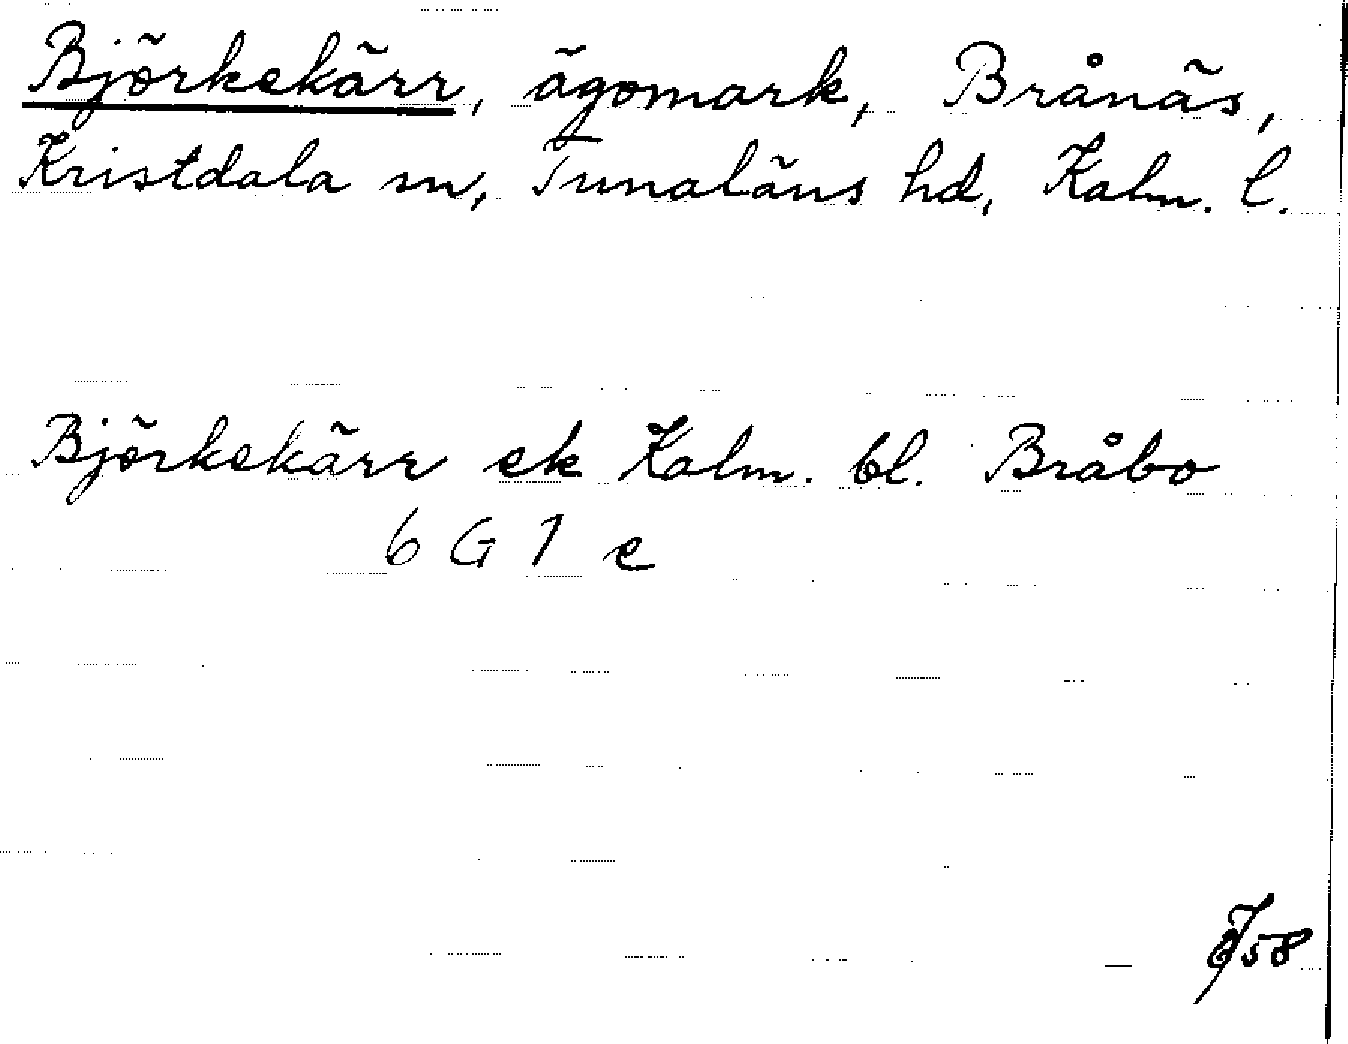 Björkekärr, ägomark, Brånäs,
Kristdala sn, Tunaläns hd, Kalm. l.
Björkekärr ek Kalm. bl. Bråbo
6 G 1 e
58